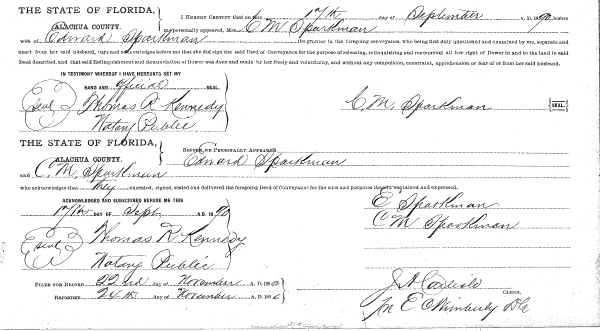 THE STATE OF FLORIDA,
ALACHUA COUNTY.
I HEREBY CERTIFY that on this 17th day of September A. D. 1890, before
me personally appeared, Mrs. C M Sparkman
wife of Edward Sparkman the grantor in the foregoing conveyance, who being by me first duly questioned and examined by me, separate and
apart from her said husband, says and acknowledges before me that she did sign the said Deed of Conveyance for the purpose of releasing, relinquishing and renouncing all her right of Dower in and to the land in said
Deed described, and that said Relinquishment and denunciation of Dower was done and made by her freely and voluntarily, and without any compulsion, constraint, apprehension or fear of or from her said husband.
IN TESTIMONY WHEREOF I HAVE HEREUNTO SET MY
HAND AND official SEAL.
Seal Thomas R Kennedy
C. M. Sparkman {SEAL.}
Notary Public
THE STATE OF FLORIDA,
ALACHUA COUNTY.
BEFORE ME PERSONALLY APPEARED Edward Sparkman
and C. M. Sparkman
who acknowledges that they executed, signed, sealed and delivered the foregoing Deed of Conveyance for the uses and purposes therein explained and expressed.
ACKNOWLEDGED AND SUBSCRIBED BEFORE ME THIS
E Sparkman
17th DAY OF Sept A. D. 1890
C M Sparkman
Seal Thomas R Kennedy
Notary Public
FILED FOR RECORD 22nd day of November A. D. 1890
J. A. Carlisle CLERK.
RECORDED 24th day of November A. D. 1890
Per E C Wimberly D C